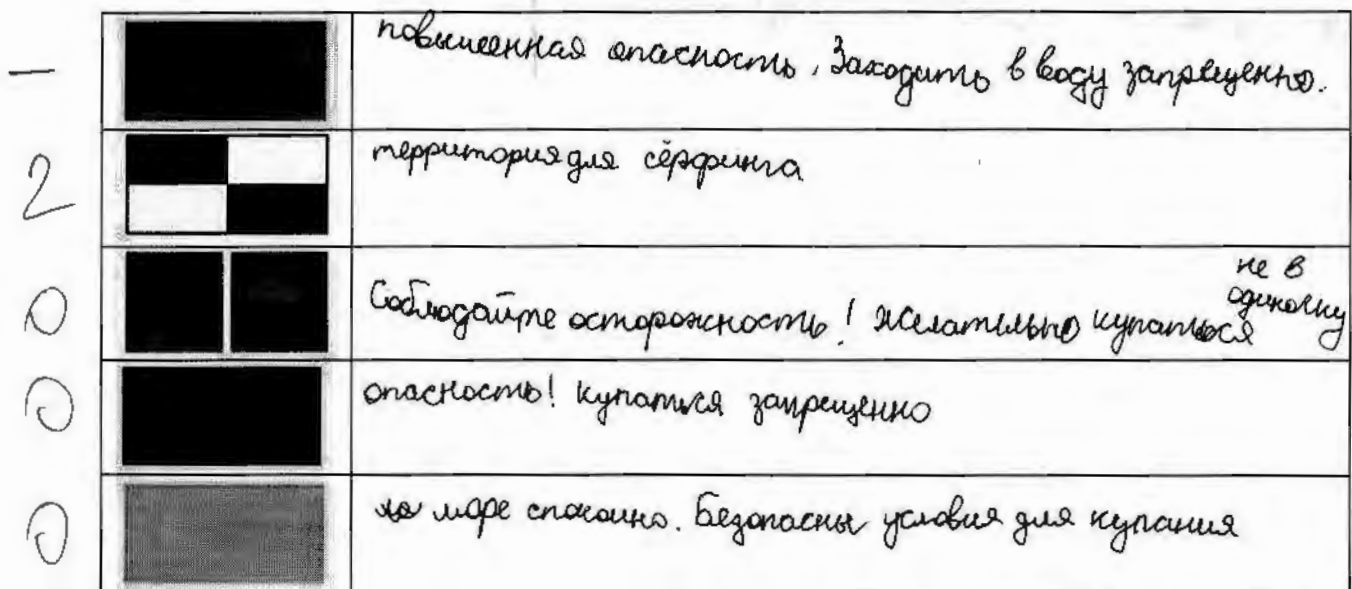 —
повышенная опасность, Заходить в воду запрещенно.
2
территория для сёрфинга
0
Соблюдайте осторожность! желательно купаться не в одиночку
0
опасность! купаться запрещенно
0
море спокойно. Безопасны условия для купания